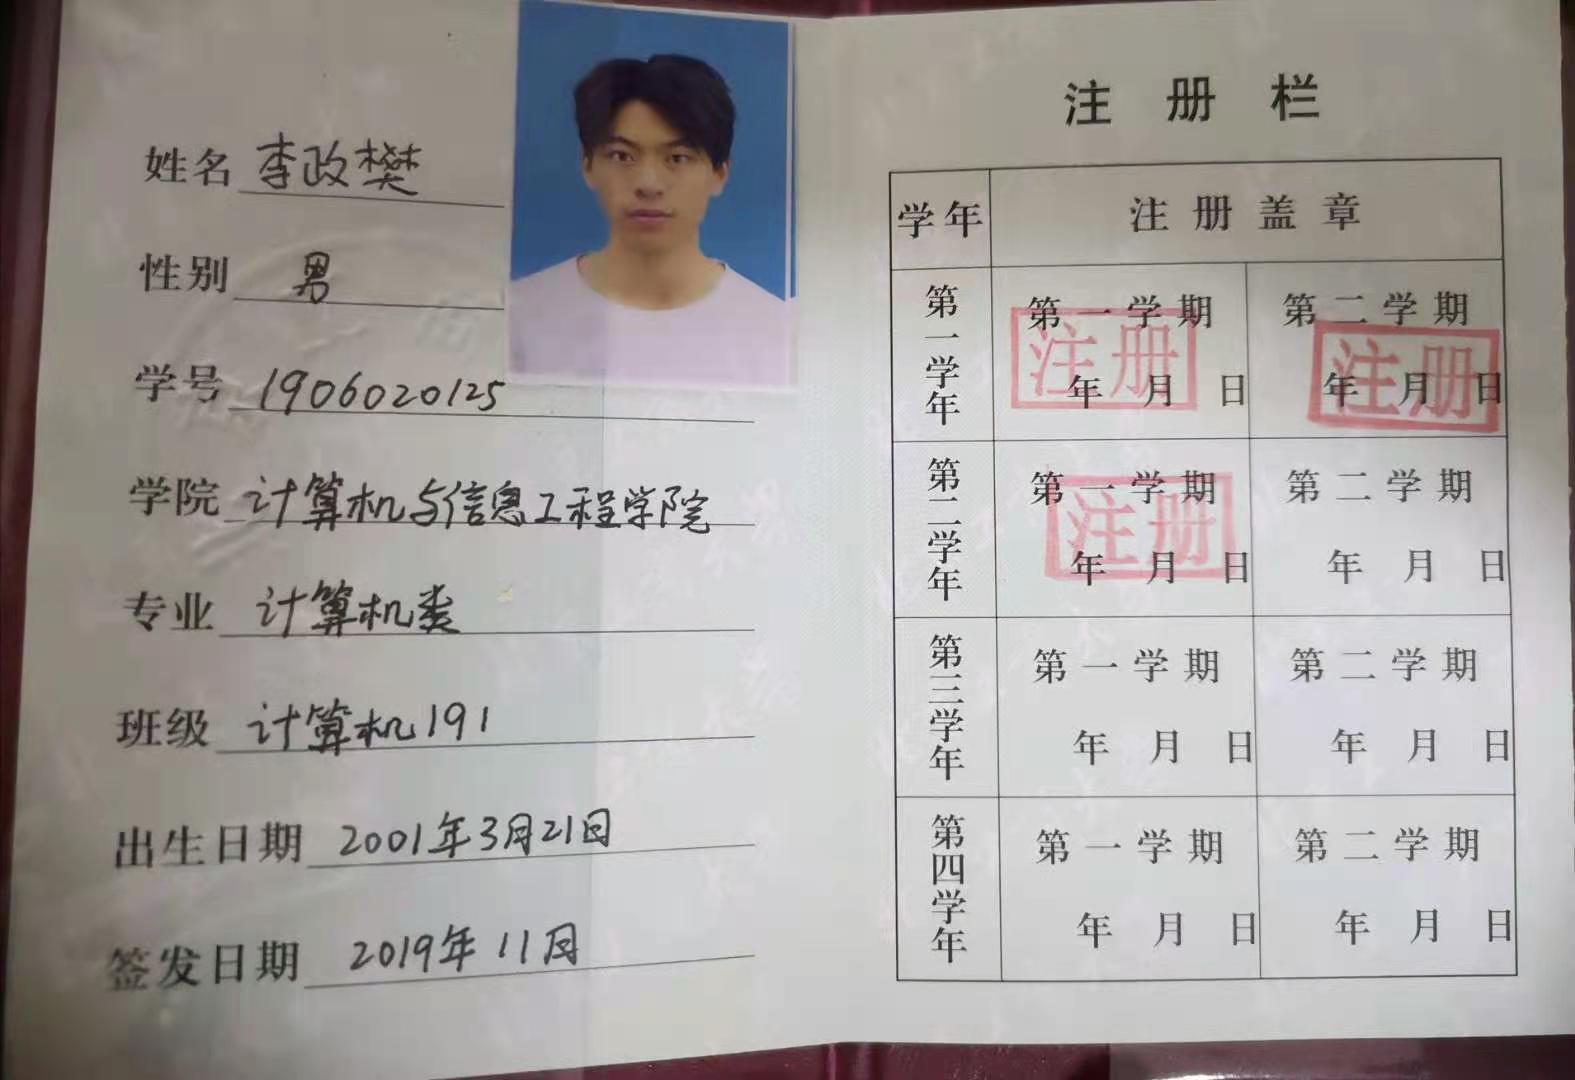 姓名 李政樊
性别 男
学号 1906020125
学院 计算机与信息工程学院
专业 计算机类
班级 计算机191
出生日期 2001年3月21日
签发日期 2019年11月
注册栏
学年 注册盖章
第一学年
第一学期 第二学期
注册 注册
年 月 日 年 月 日
第二学年
第一学期 第二学期
注册
年 月 日 年 月 日
第三学年
第一学期 第二学期
年 月 日 年 月 日
第四学年
第一学期 第二学期
年 月 日 年 月 日